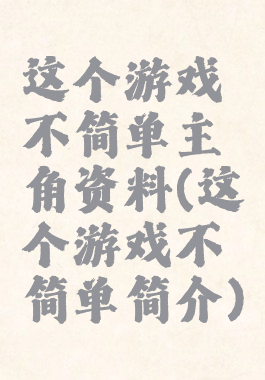 这个游戏
不简单主
角资料(这
个游戏不
简单简介)